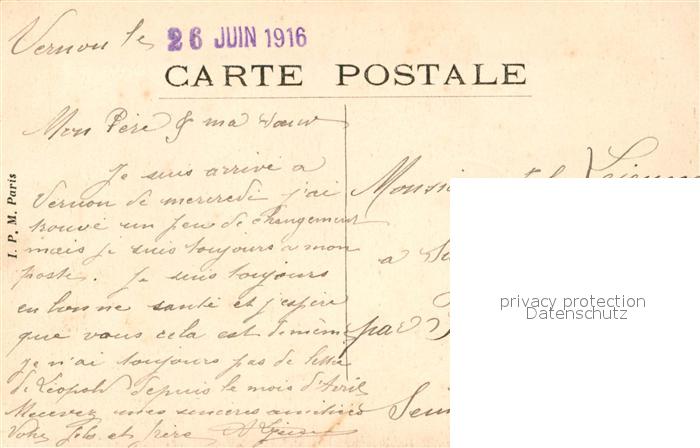 Vernon le 26 JUIN 1916
CARTE POSTALE
Mon Père & ma sœur
Je suis arrivé a
Vernon de mercredi j'ai
trouvé un peu de changement
mais je suis toujours a mon
poste. Je suis toujours
en bonne santé et j'espère
que vous cela est de même
je n'ai toujours pas de lettre
de Léopold depuis le mois d'Avril
Recevez mes sincères amitiés
Votre fils et frère
Monsie
a
par
Sein
I. P. M. Paris
privacy protection
Datenschutz